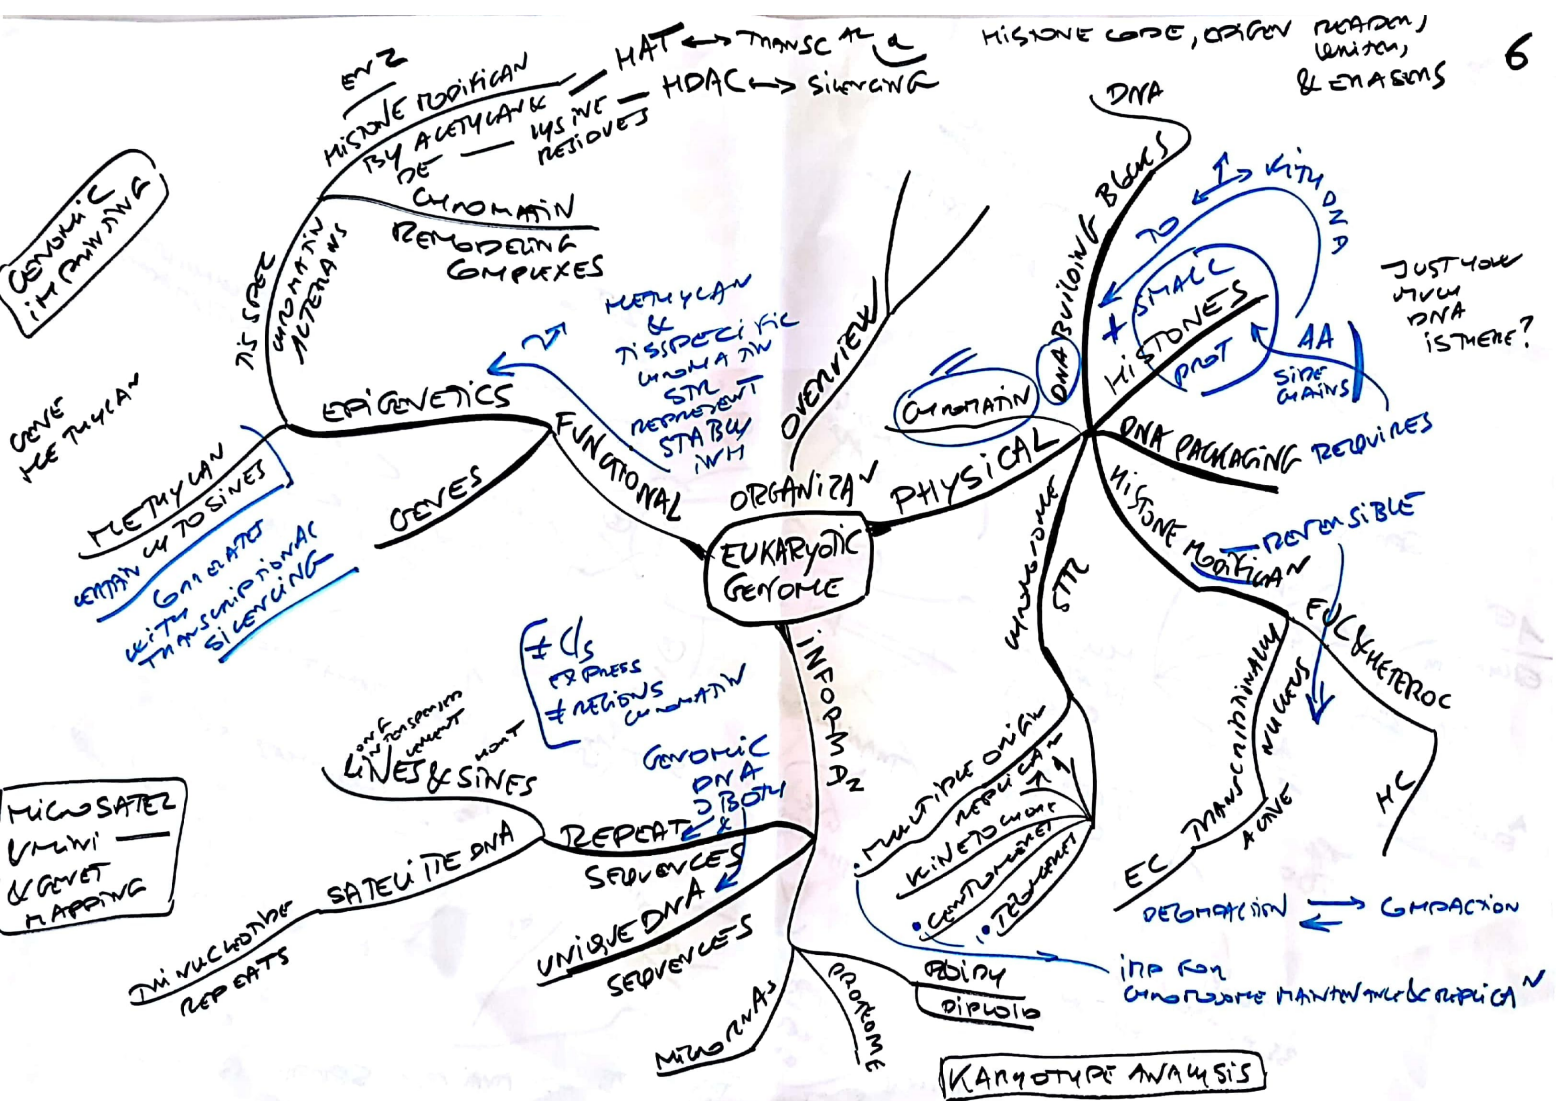 6
HISTONE CODE, EPIGEN READERS,
WRITERS,
& ERASERS
ENZ
HISTONE MODIFICAN
BY ACETYLAN &
DE — LYSINE
RESIDUES
HAT ↔ TRANSC AL
HDAC ↔ SILENCING
CHROMATIN
REMODELING
COMPLEXES
TISSPEC
CHROMATIN
ALTERANS
GENOMIC
IMPRINTING
GENE
METHYLAN
EPIGENETICS
METHYLAN
&
TISSPECIFIC
CHROMATIN
STR
REPRESENT
STABLY
INH
METHYLAN
CYTOSINES
CERTAIN
CORRELATES
WITH
TRANSCRIPTIONAL
SILENCING
GENES
FUNCTIONAL
OVERVIEW
ORGANIZAN
EUKARYOTIC
GENOME
PHYSICAL
CHROMATIN
DNA
BUILDING BLOCKS
DNA
+
SMALL
HISTONES
PROT
TO
WITH DNA
AA
SIDE
CHAINS
JUST HOW
MUCH
DNA
IS THERE?
DNA PACKAGING
REQUIRES
HISTONE MODIFICAN
REVERSIBLE
EUC & HETEROC
HC
TRANSCRIPTIONALLY
ACTIVE
NUCLEUS
EC
DECOMPACTION ⇄ COMPACTION
CHROMOSOME
STR
MULTIPLE ORIGIN
REPLICAN
KINETOCHORE
CENTROMERE
TELOMERE
IMP FOR
CHROMOSOME MAINTENANCE & REPLICAN
INFORMAN
≠ C/S
EXPRESS
≠ REGIONS
CHROMATIN
GENOMIC
DNA
BOTH
&
REPEAT
SEQUENCES
LONG
INTERSPERSED
ELEMENT
SHORT
LINES & SINES
SATELLITE DNA
DINUCLEOTIDE
REPEATS
MICROSATEL
V MINI —
& GENET
MAPPING
UNIQUE DNA
SEQUENCES
MICRO RNAs
PROTEOME
PLOIDY
DIPLOID
KARYOTYPE ANALYSIS